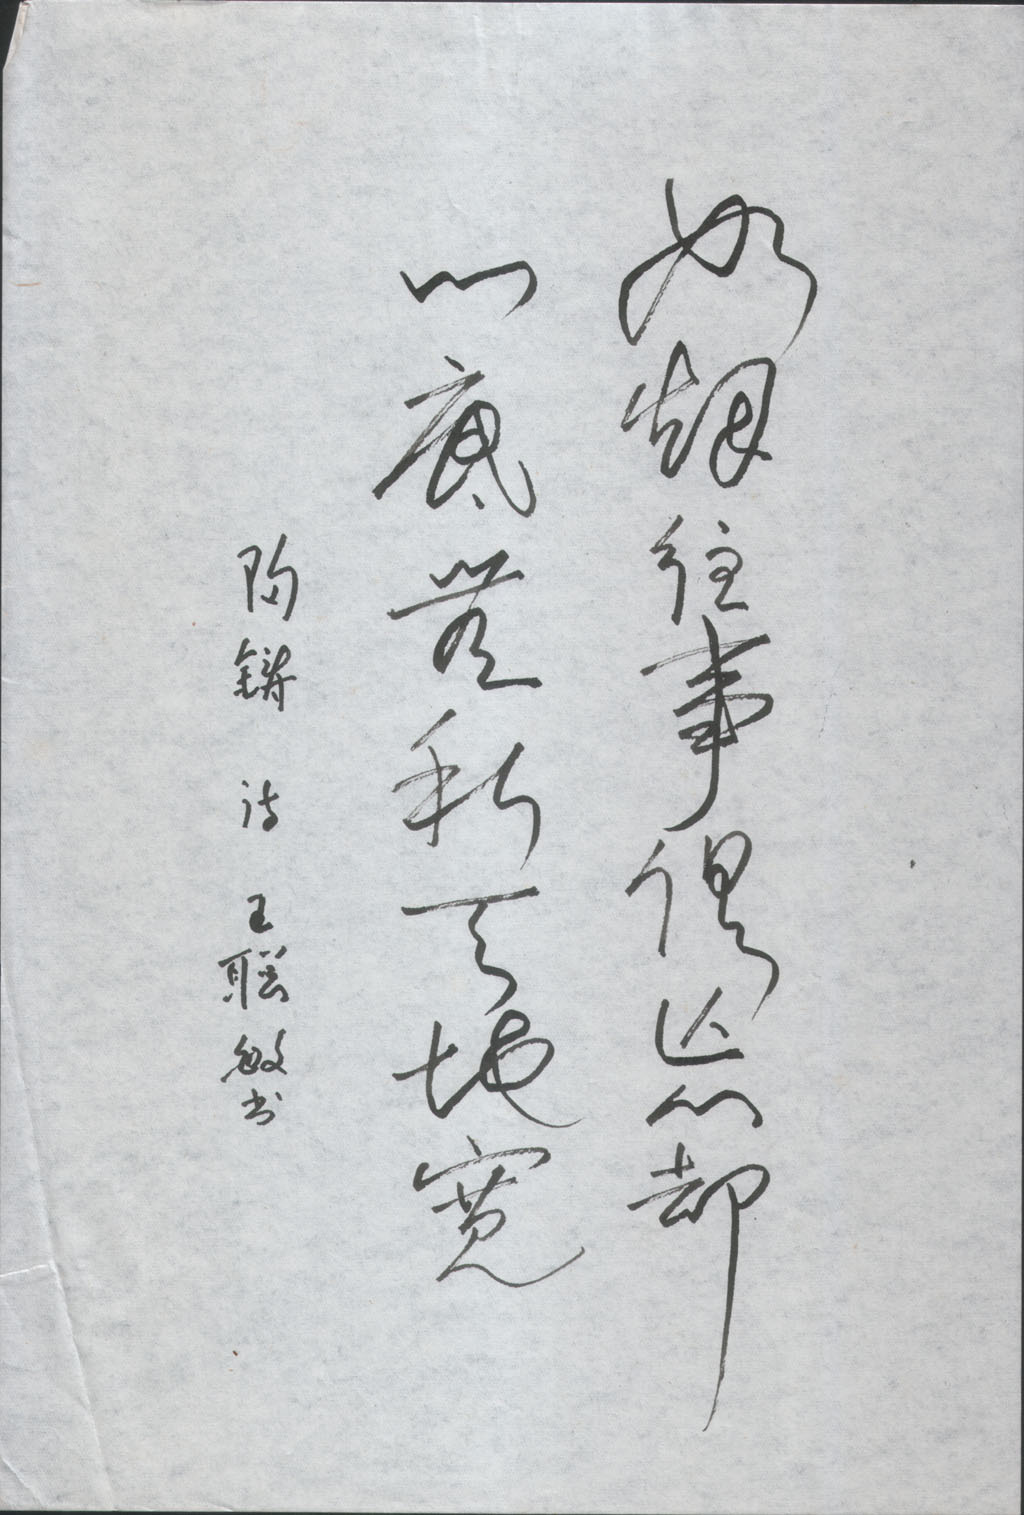 如烟往事俱忘却
心底无私天地宽
陶铸 诗 王聪敏书